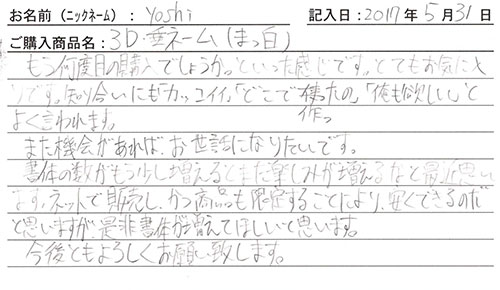 お名前（ニックネーム）： Yoshi 記入日：2017年5月31日
ご購入商品名：3D・垂ネーム（まっ白）
もう何度目の購入でしょうか。といった感じです。とてもお気に入
りです。知り合いにも「カッコイイ」「どこで作ったの」「俺も欲しい」と
よく言われます。
また機会があれば、お世話になりたいです。
書体の数がもう少し増えるとまた楽しみが増えるなと最近思い
ます。ネットで販売し、かつ商品も限定することにより、安くできるのだ
と思いますが、是非書体が増えてほしいと思います。
今後ともよろしくお願い致します。